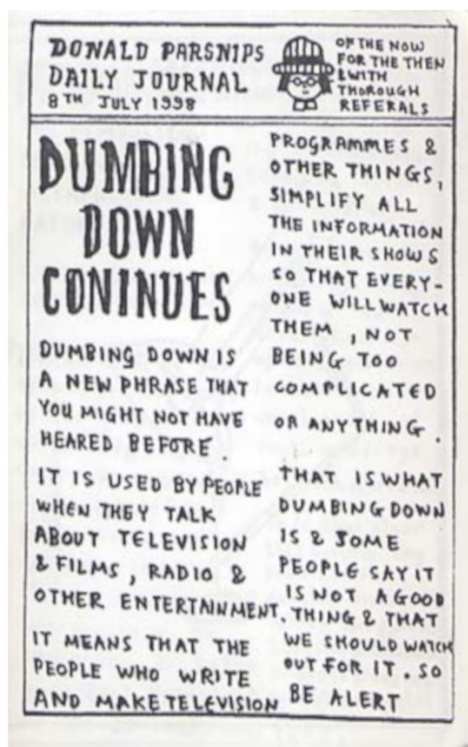 DONALD PARSNIPS
DAILY JOURNAL
8TH JULY 1998
OF THE NOW
FOR THE THEN
& WITH
THOROUGH
REFERALS
DUMBING
DOWN
CONINUES
DUMBING DOWN IS
A NEW PHRASE THAT
YOU MIGHT NOT HAVE
HEARED BEFORE
IT IS USED BY PEOPLE
WHEN THEY TALK
ABOUT TELEVISION
& FILMS, RADIO &
OTHER ENTERTAINMENT.
IT MEANS THAT THE
PEOPLE WHO WRITE
AND MAKE TELEVISION
PROGRAMMES &
OTHER THINGS,
SIMPLIFY ALL
THE INFORMATION
IN THEIR SHOWS
SO THAT EVERY-
ONE WILL WATCH
THEM, NOT
BEING TOO
COMPLICATED
OR ANYTHING.
THAT IS WHAT
DUMBING DOWN
IS & SOME
PEOPLE SAY IT
IS NOT A GOOD
THING & THAT
WE SHOULD WATCH
OUT FOR IT. SO
BE ALERT